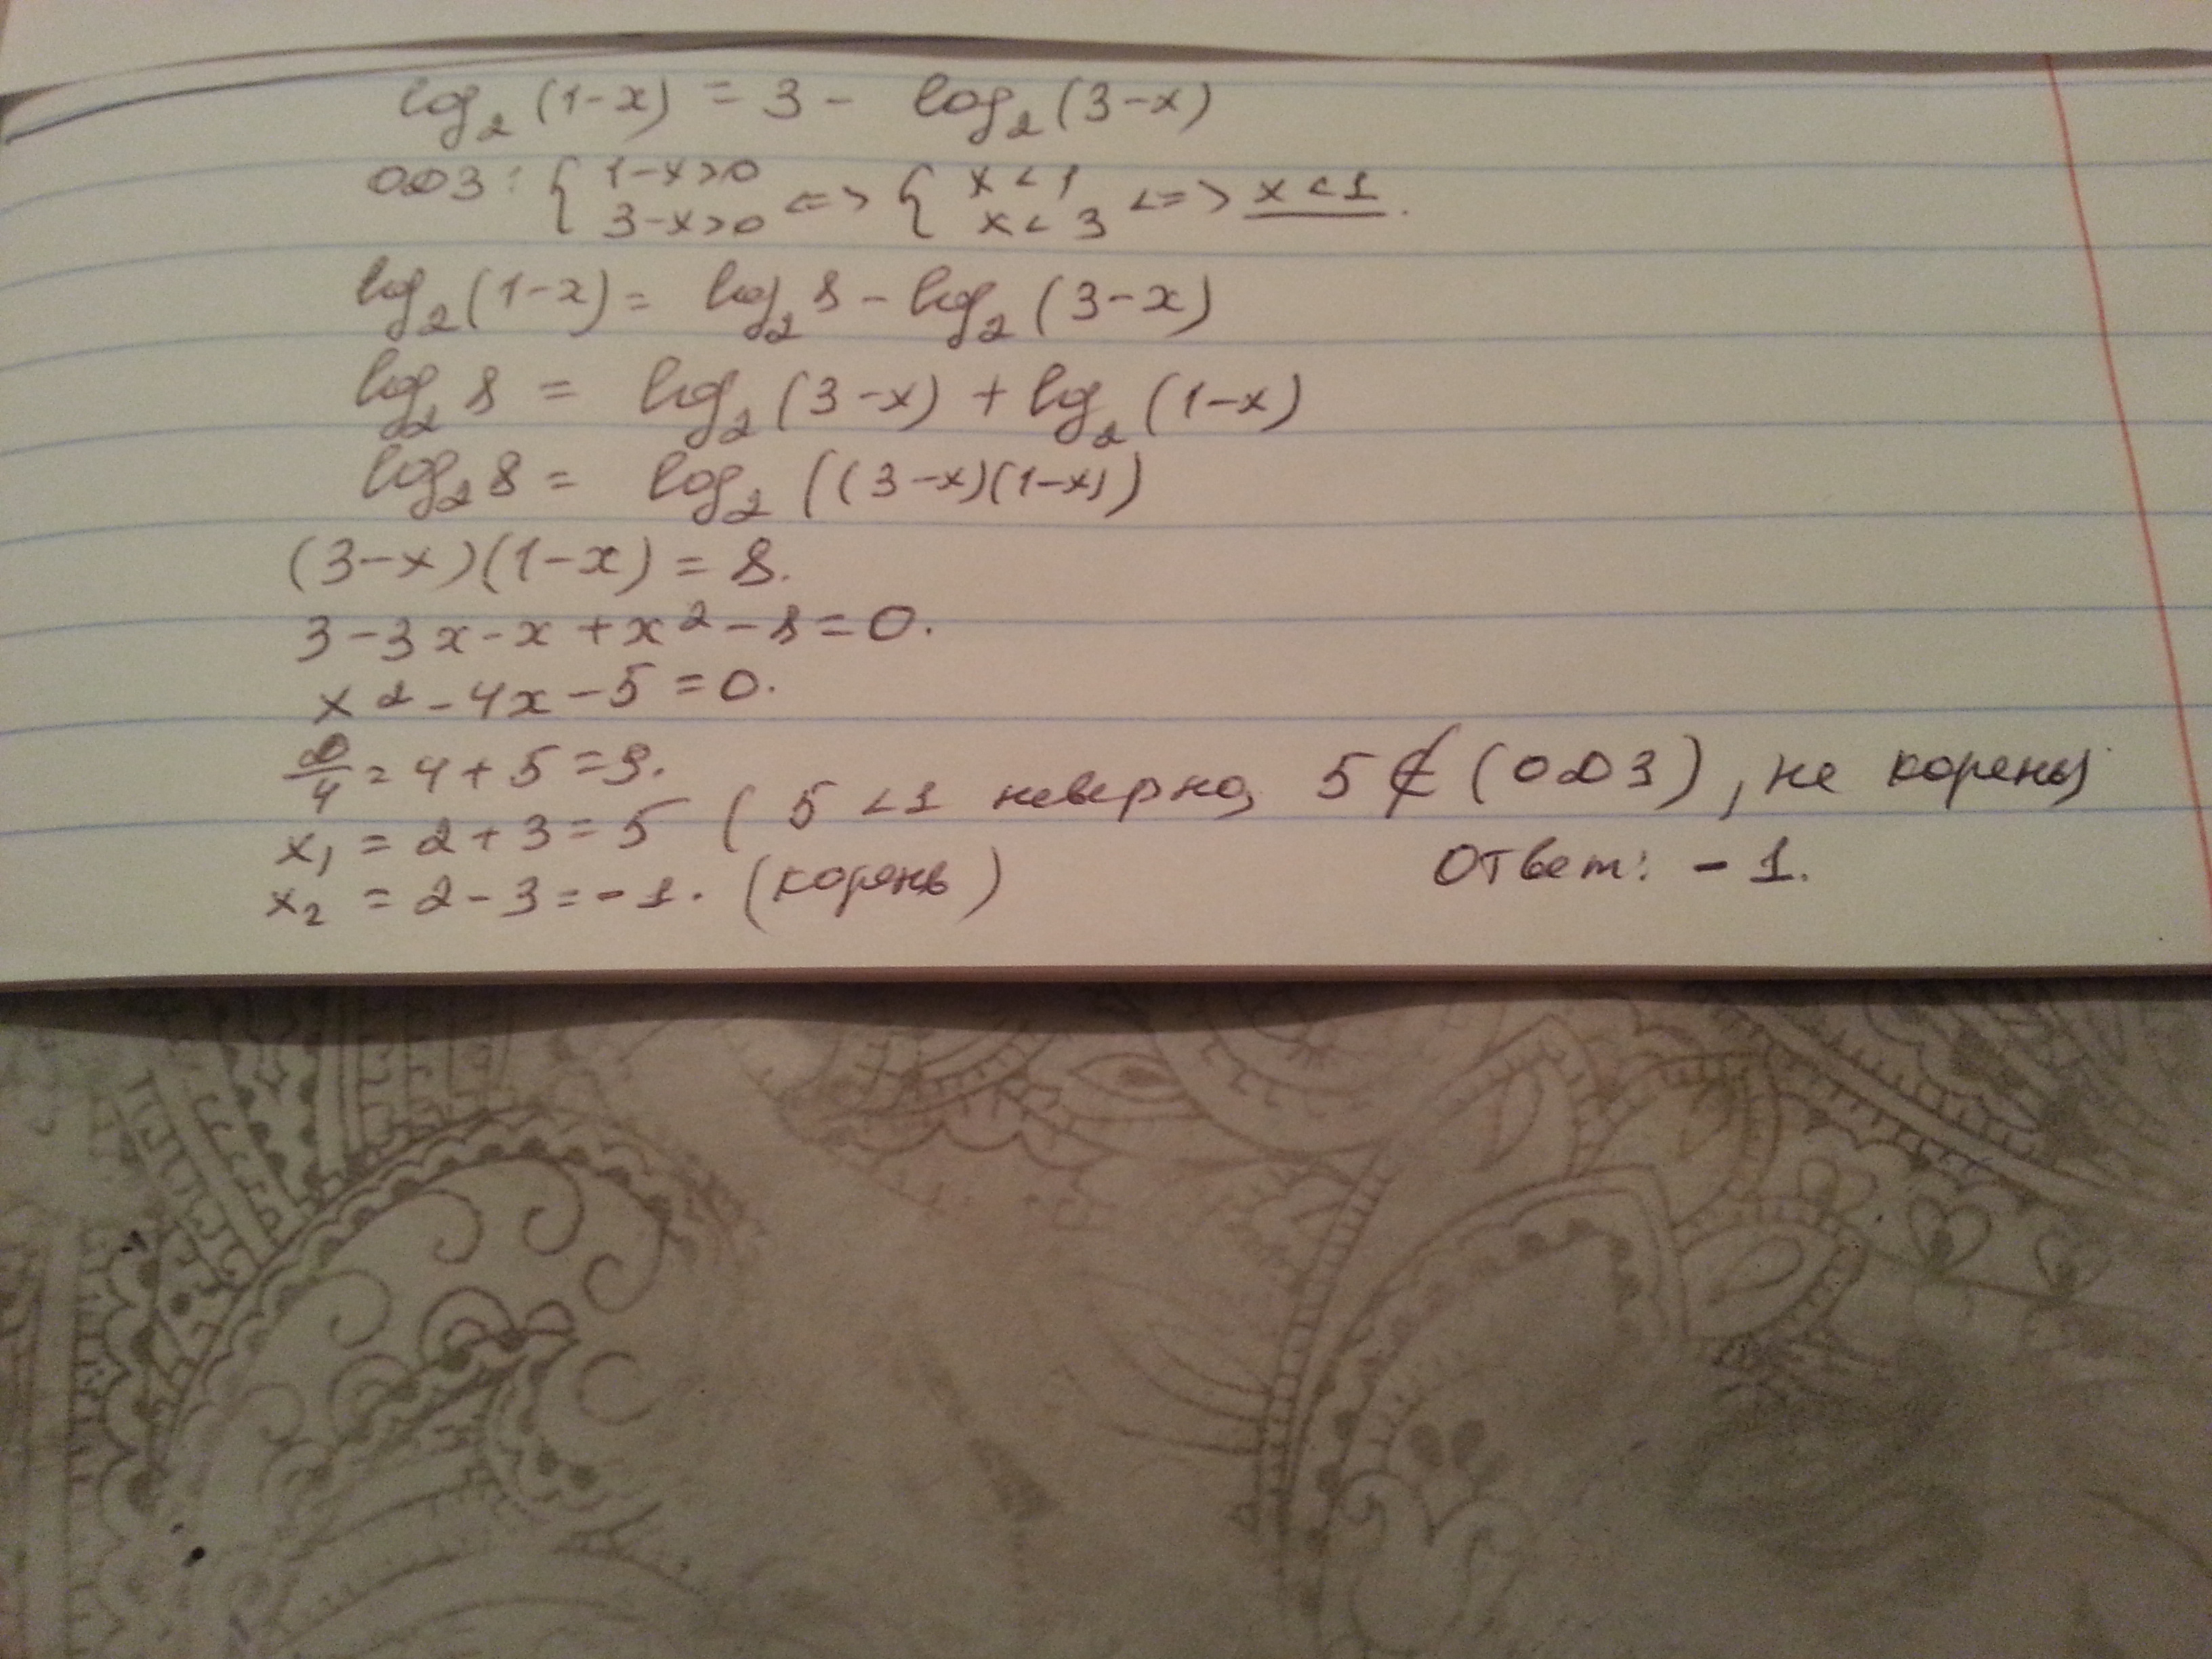 log₂(1-x) = 3 - log₂(3-x)
ОДЗ: { 1-x>0 3-x>0 <=> { x<1 x<3 <=> x<1.
log₂(1-x) = log₂8 - log₂(3-x)
log₂8 = log₂(3-x) + log₂(1-x)
log₂8 = log₂((3-x)(1-x))
(3-x)(1-x) = 8.
3-3x-x+x²-8=0.
x²-4x-5=0.
D/4 = 4+5=9.
x₁ = 2+3=5 (5<1 неверно, 5∉(ОДЗ), не корень)
x₂ = 2-3=-1. (корень)
Ответ: -1.